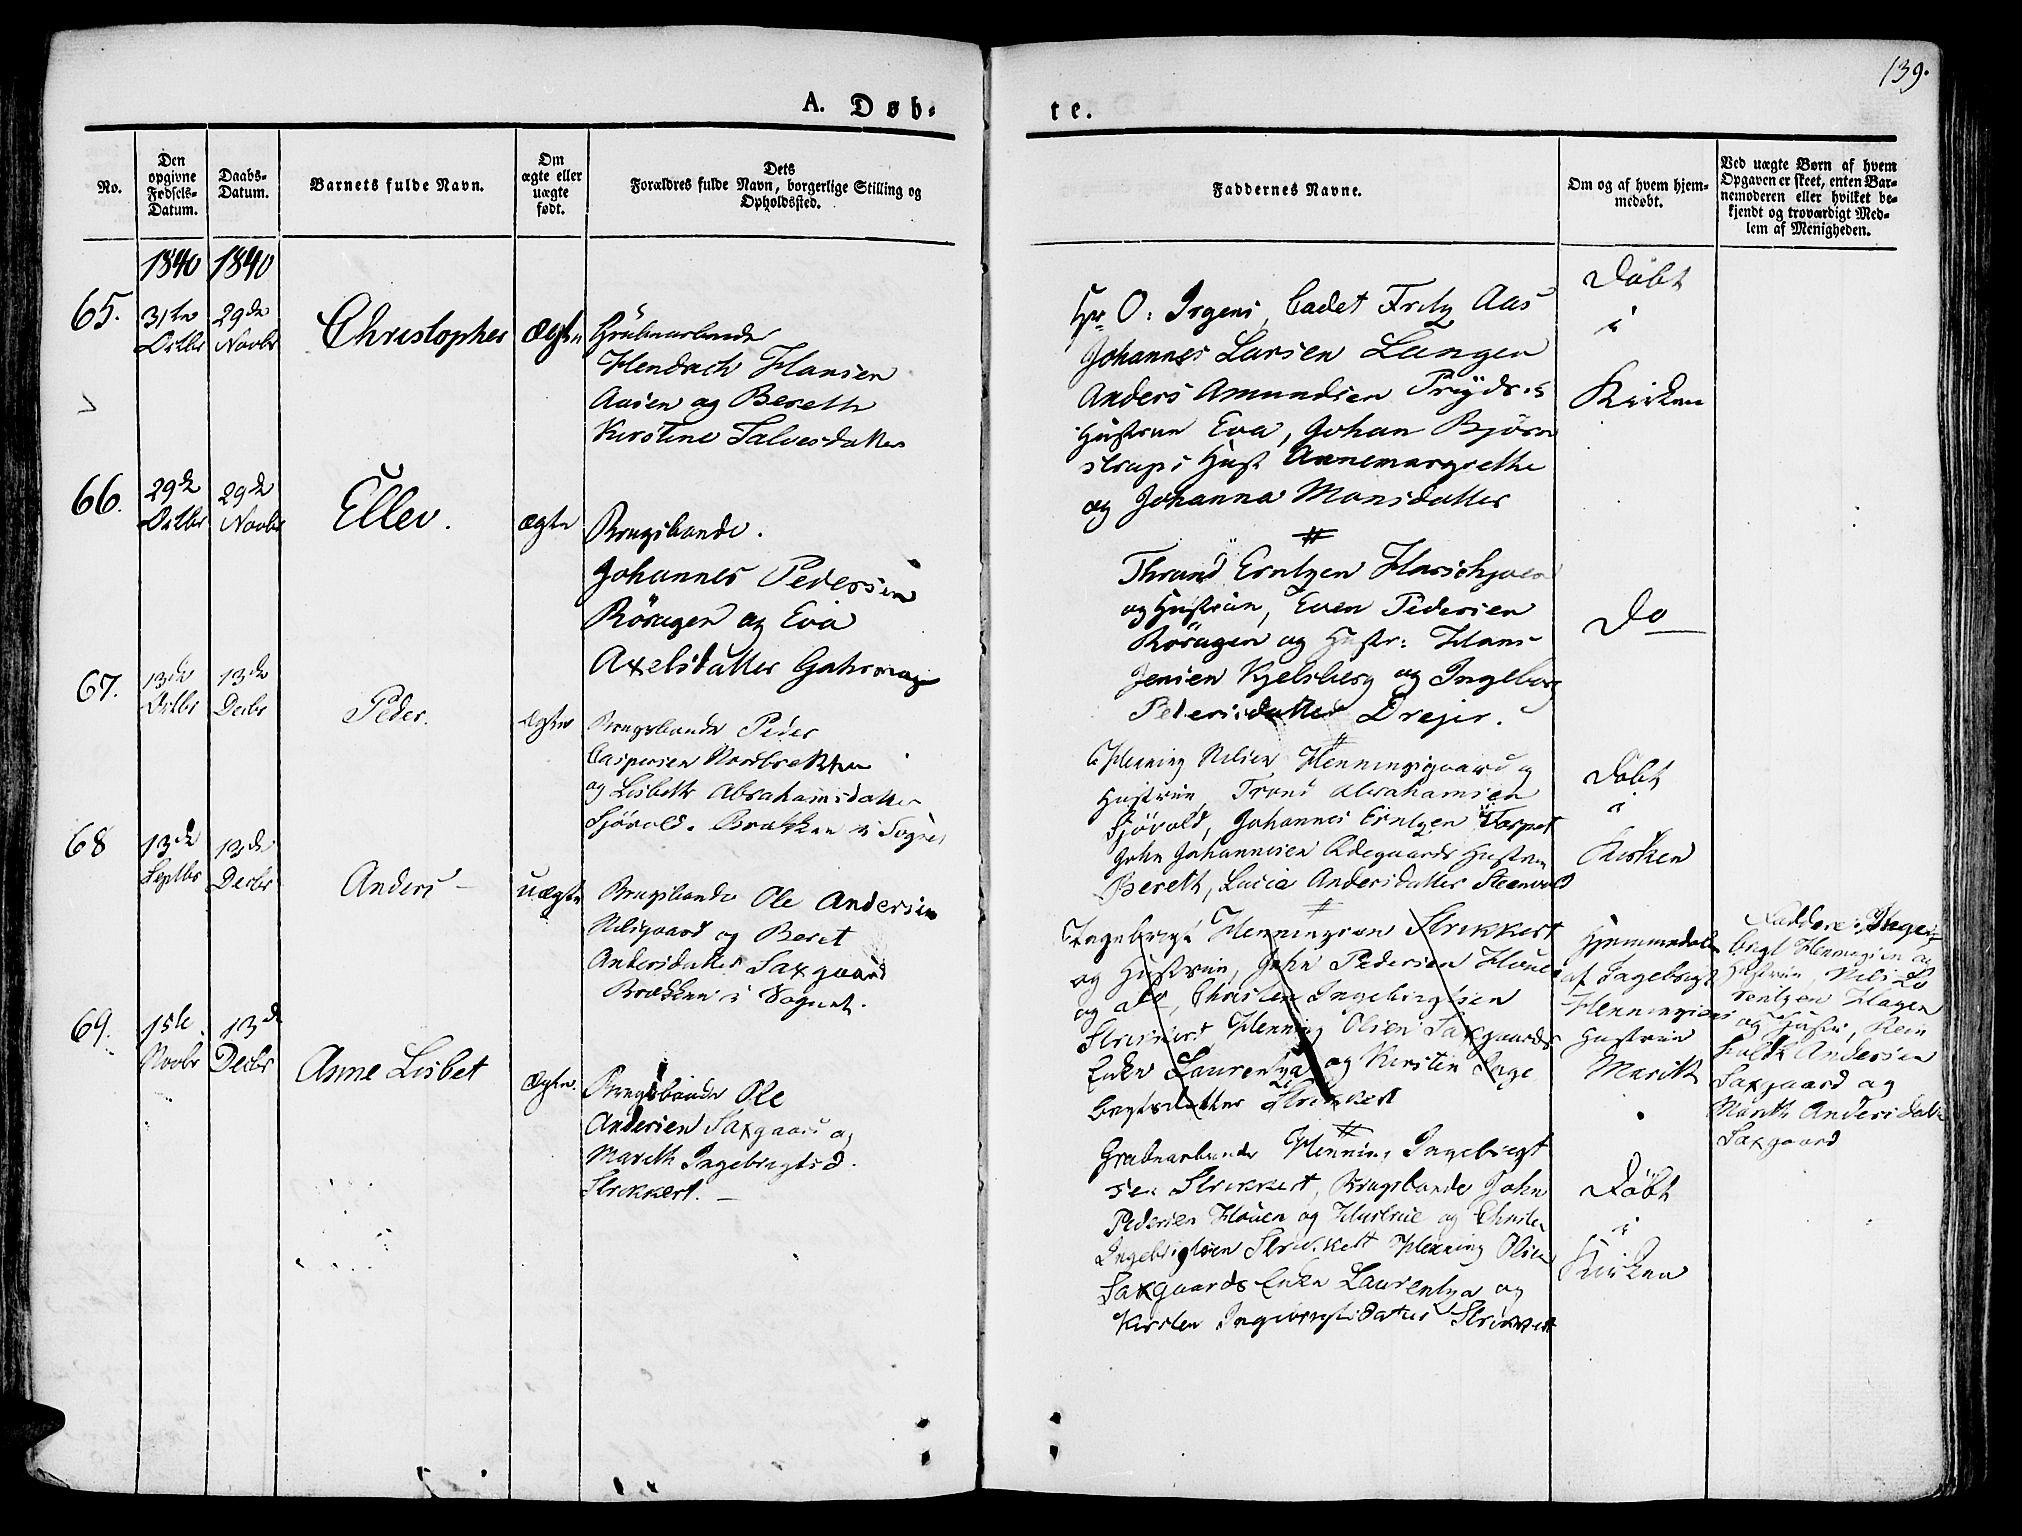 139.
A. Døb=
te.
No.
Den opgivne Fødsels-Datum.
Daabs-Datum.
Barnets fulde Navn.
Om ægte eller uægte født.
Dets Forældres fulde Navn, borgerlige Stilling og Opholdssted.
Faddernes Navne.
Om og af hvem hjemmedøbt.
Ved uægte Børn af hvem Opgaven er skeet, enten Barnemoderen eller hvilket bekjendt og troværdigt Medlem af Menigheden.
1840 1840
65.
31te
Octbr
29de
Novbr
Christopher
ægte
Grubearbeider
Hendrich Hansen
Aasen og Bereth
Kirstine Talvesdatter
Hr O: Irgens, Cadet Fritz Aas
Johannes Larsen Langen
Anders Amundsen Prÿds
Hustrue Eva, Johan Bjørn
strups Hust Annemargrethe
og Johanna Monsdatter
Døbt
i
Kirken
66.
29de
Octbr
29de
Novbr
Ellev.
ægte
Brugsbonde.
Johannes Pedersen
Røragen og Eva
Axelsdatter
Thrond Erntzen
og Hustrue, Even Pedersen
Røragen og Hustr: Hans
Jensen Kjelsberg og Ingeborg
Pedersdatter Drejer.
Do
67.
13de
Octbr
13de
Decbr
Peder.
ægte
Brugsbonde Peder
Caspersen Nordbrekken
og Lisbeth Abrahamsdatter
Sjövold. Brækken i Sognet
Henning Nilsen Henningsgaard og
Hustrue, Trond Abrahamsen
Sjövold, Johannes Erntzen Torpet
John Johannesen Ødegaards Hustrue
Bereth, Lucie Andersdatter Steenvold
Døbt
i
Kirken
68
13de
Septbr
13de
Decbr
Anders
uægte
Brugsbonde Ole Andersen
Nilsgaard og Beret
Andersdatter Saxgaard
Brækken i Sognet.
Ingebrigt Henningsen Strikkert
og Hustrue, John Pedersen Houen
og do, Christen Ingebrigtsen
Strikkert, Henning Olsen Saxgaards
Enke Laurentza og Kirsten Inge
brigtsdatter Strikkert
Hjemmedøbt
af Ingebrigt
Henningsens
Hustrue
Marith
Faddere: Inge
brigt Henningsen og
Hustrue, Nils Lo
rentzen Hagen
og Hustr,
Andersen
Saxgaard og
Marith Andersdatter
Saxgaard
69.
15de
Novbr
13de
Decbr
Anne Lisbet
ægte.
Brugsbonde Ole
Andersen Saxgaard og
Marith Ingebrigtsd.
Strikkert.
Grubearbeider Henning Ingebrigt
sen Strikkert, Brugsbonde John
Pedersen Houen og Hustrue og Christen
Ingebrigtsen Strikkert Henning Olsen
Saxgaards Enke Laurentza og
Kirsten Ingebrigtsdatter Strikkert
Døbt
i
Kirken